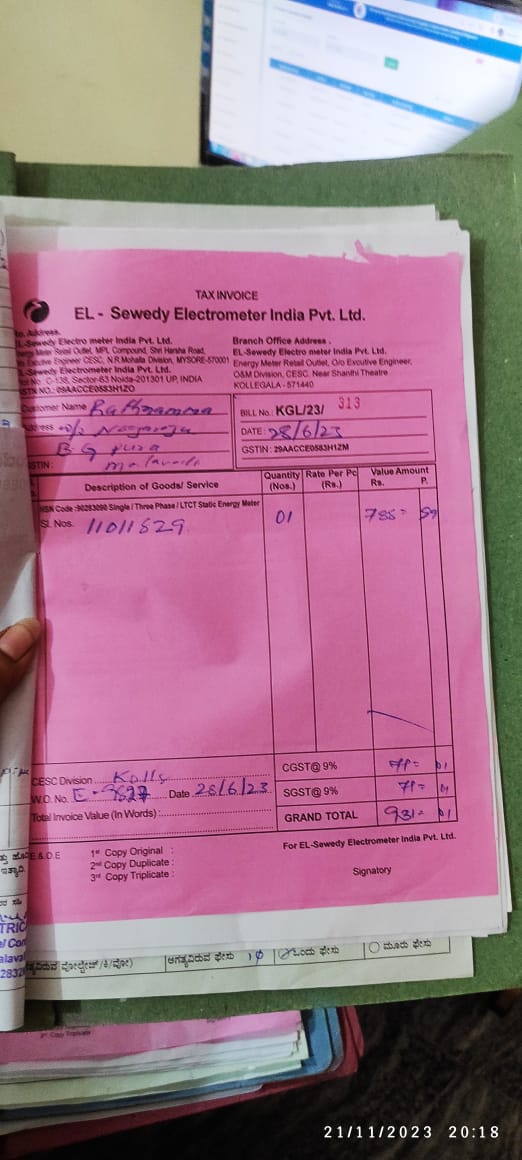 TAX INVOICE
EL - Sewedy Electrometer India Pvt. Ltd.
Address.
Sewedy Electro meter India Pvt. Ltd.
Energy Meter Retail Outlet, MPL Compound, Shri Harsha Road,
Executive Engineer CESC, N.R.Mohalla Division, MYSORE-570001
Sewedy Electrometer India Pvt. Ltd.
No. C-138, Sector-63 Noida-201301 UP, INDIA
GSTN NO.: 09AACCE0583H1ZO
Branch Office Address .
EL-Sewedy Electro meter India Pvt. Ltd.
Energy Meter Retail Outlet, O/o Excutive Engineer,
O&M Division, CESC, Near Shanthi Theatre
KOLLEGALA - 571440
Customer Name
Address w/o Nagaraju
B G pura
GSTIN :
BILL No.: KGL/23/ 313
DATE : 28/6/23
GSTIN : 29AACCE0583H1ZM
Description of Goods/ Service Quantity (Nos.) Rate Per Pc (Rs.) Value Amount Rs. P.
HSN Code :90283090 Single / Three Phase / LTCT Static Energy Meter
Sl. Nos. 11011529 01
CESC Division
W.O. No. Date 28/6/23
Total Invoice Value (In Words) :
CGST@ 9% 71= 01
SGST@ 9% 71= 01
GRAND TOTAL 931= 01
E & O E
1st Copy Original :
2nd Copy Duplicate :
3rd Copy Triplicate :
For EL-Sewedy Electrometer India Pvt. Ltd.
Signatory
ಅಗತ್ಯವಿರುವ ಫೇಸು 1φ ಒಂದು ಫೇಸು ಮೂರು ಫೇಸು
3rd Copy Triplicate
21/11/2023 20:18